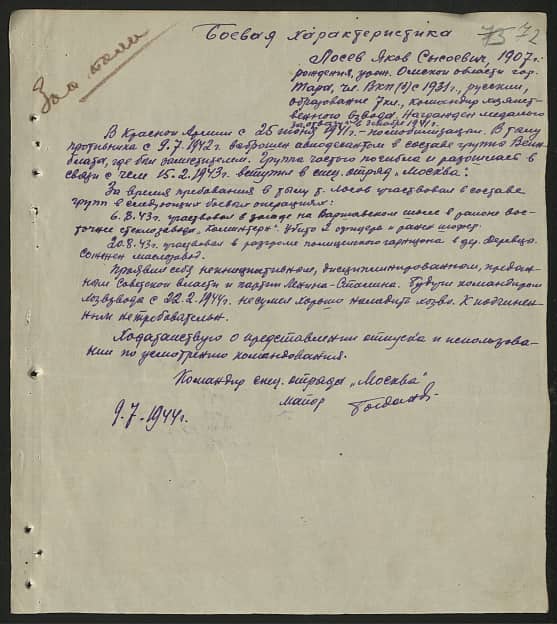 Боевая характеристика
75 72
Лосев Яков Сысоевич, 1907 г.
рождения, урож. Омской области гор.
Тара, чл. ВКП(б) с 1931 г., русский,
образование 7 кл., командир
взвода. Награжден медалью
"За отвагу" в 1941 г.
В Красной Армии с 25 июня 1941 г. – по мобилизации. В тылу
противника с 9.7.1942 г. выброшен авиадесантом в составе группы
где был заместителем. Группа частью погибла и разошлась в
связи с чем 15.2.1943 г. вступил в спец. отряд „Москва".
За время пребывания в тылу т. Лосев участвовал в составе
групп в следующих боевых операциях:
6.8.43 г. участвовал в засаде на Варшавском шоссе в районе вос-
точнее стеклозавода „Коминтерн". Убито офицера и ранен шофер.
20.8.43 г. участвовал в разгроме полицейского гарнизона в дер.
Сожжен маслозавод.
Проявил себя неинициативным, дисциплинированным, предан-
ным Советской власти и партии Ленина-Сталина. Будучи командиром
хозвзвода с 22.2.1944 г. не сумел хорошо наладить хозво. К подчинен-
ным нетребователен.
Ходатайствую о представлении отпуска и использова-
нии по усмотрению командования.
Командир спец. отряда „Москва"
майор
9.7.1944 г.